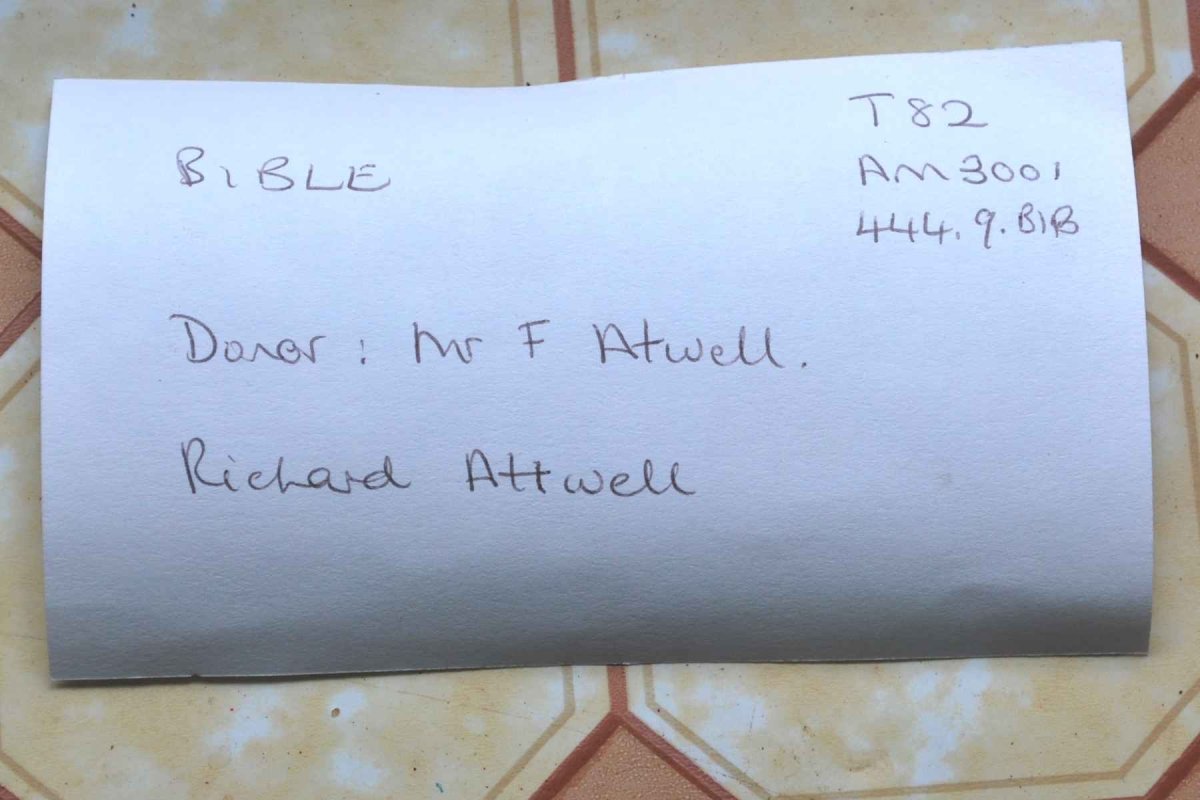 T82
AM3001
444.9.BIB
BIBLE
Donor: Mr F Atwell.
Richard Attwell